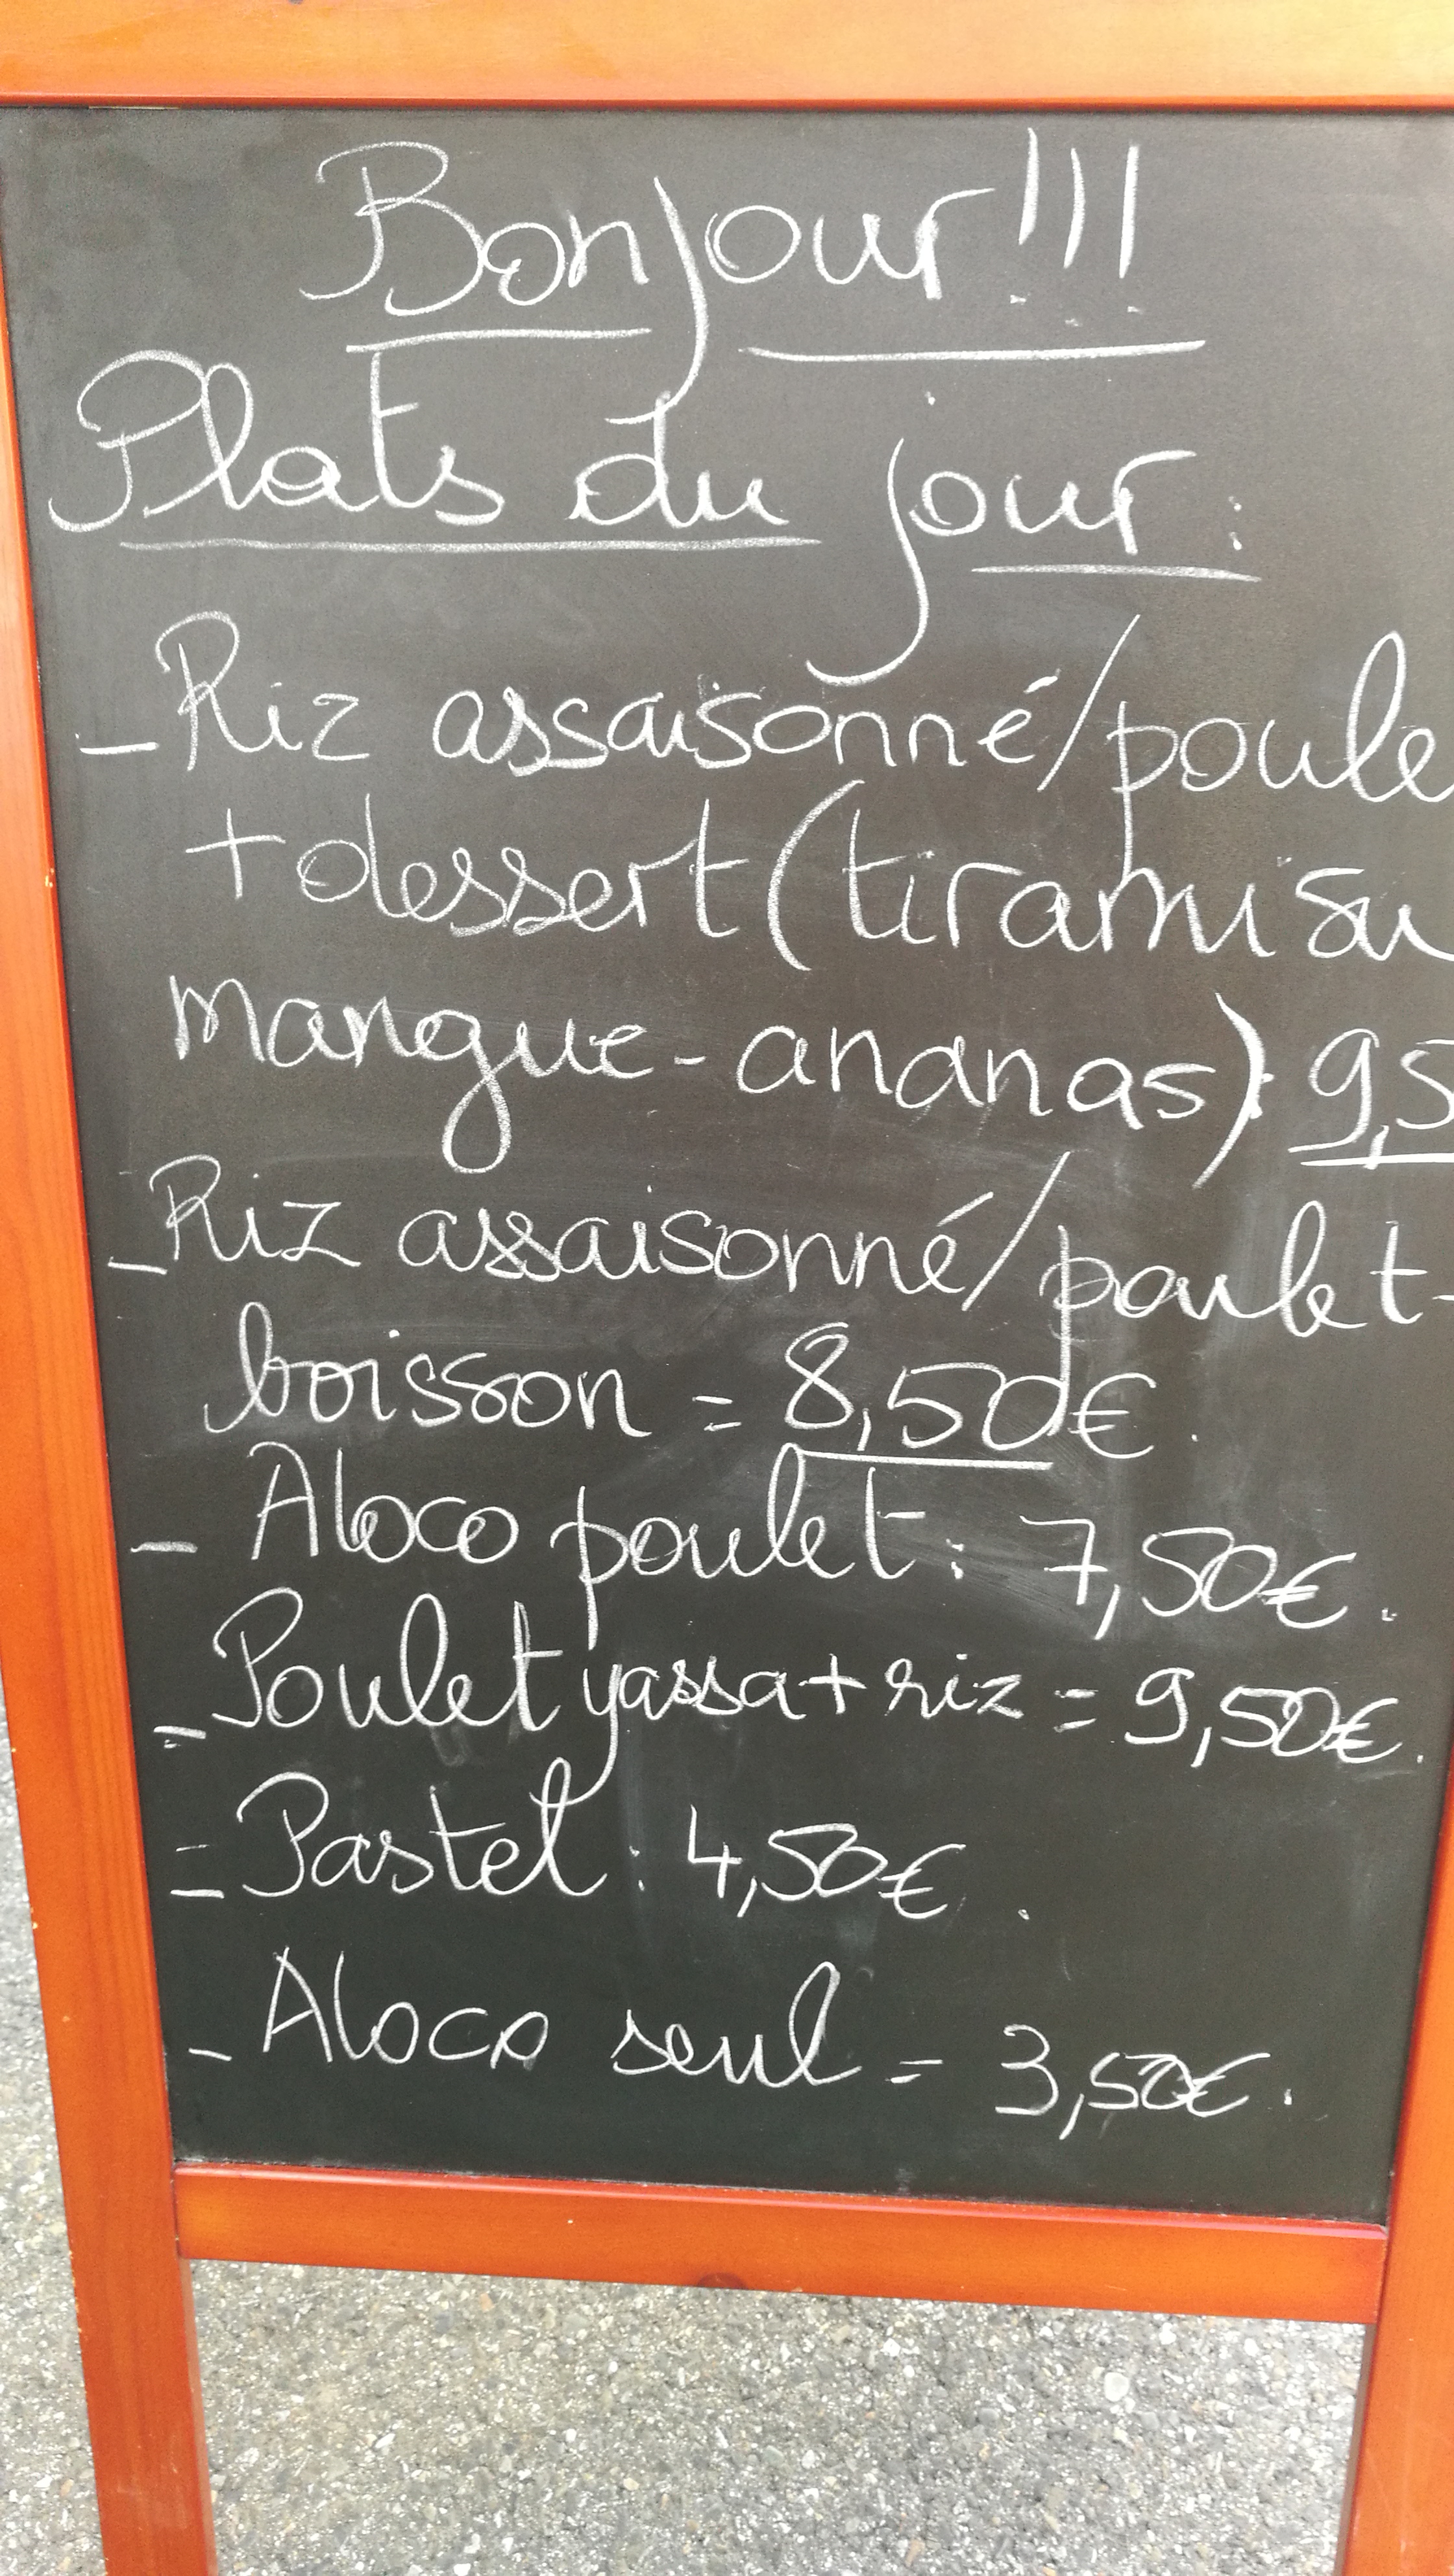 Bonjour!!!
Plats du jour :
- Riz assaisonné/poule
+ dessert (tiramisu
mangue - ananas): 9,5
- Riz assaisonné/poulet -
boisson = 8,50€.
- Aloco poulet : 7,50€.
- Poulet yassa + riz = 9,50€.
= Pastel : 4,50€.
- Aloco seul = 3,50€.